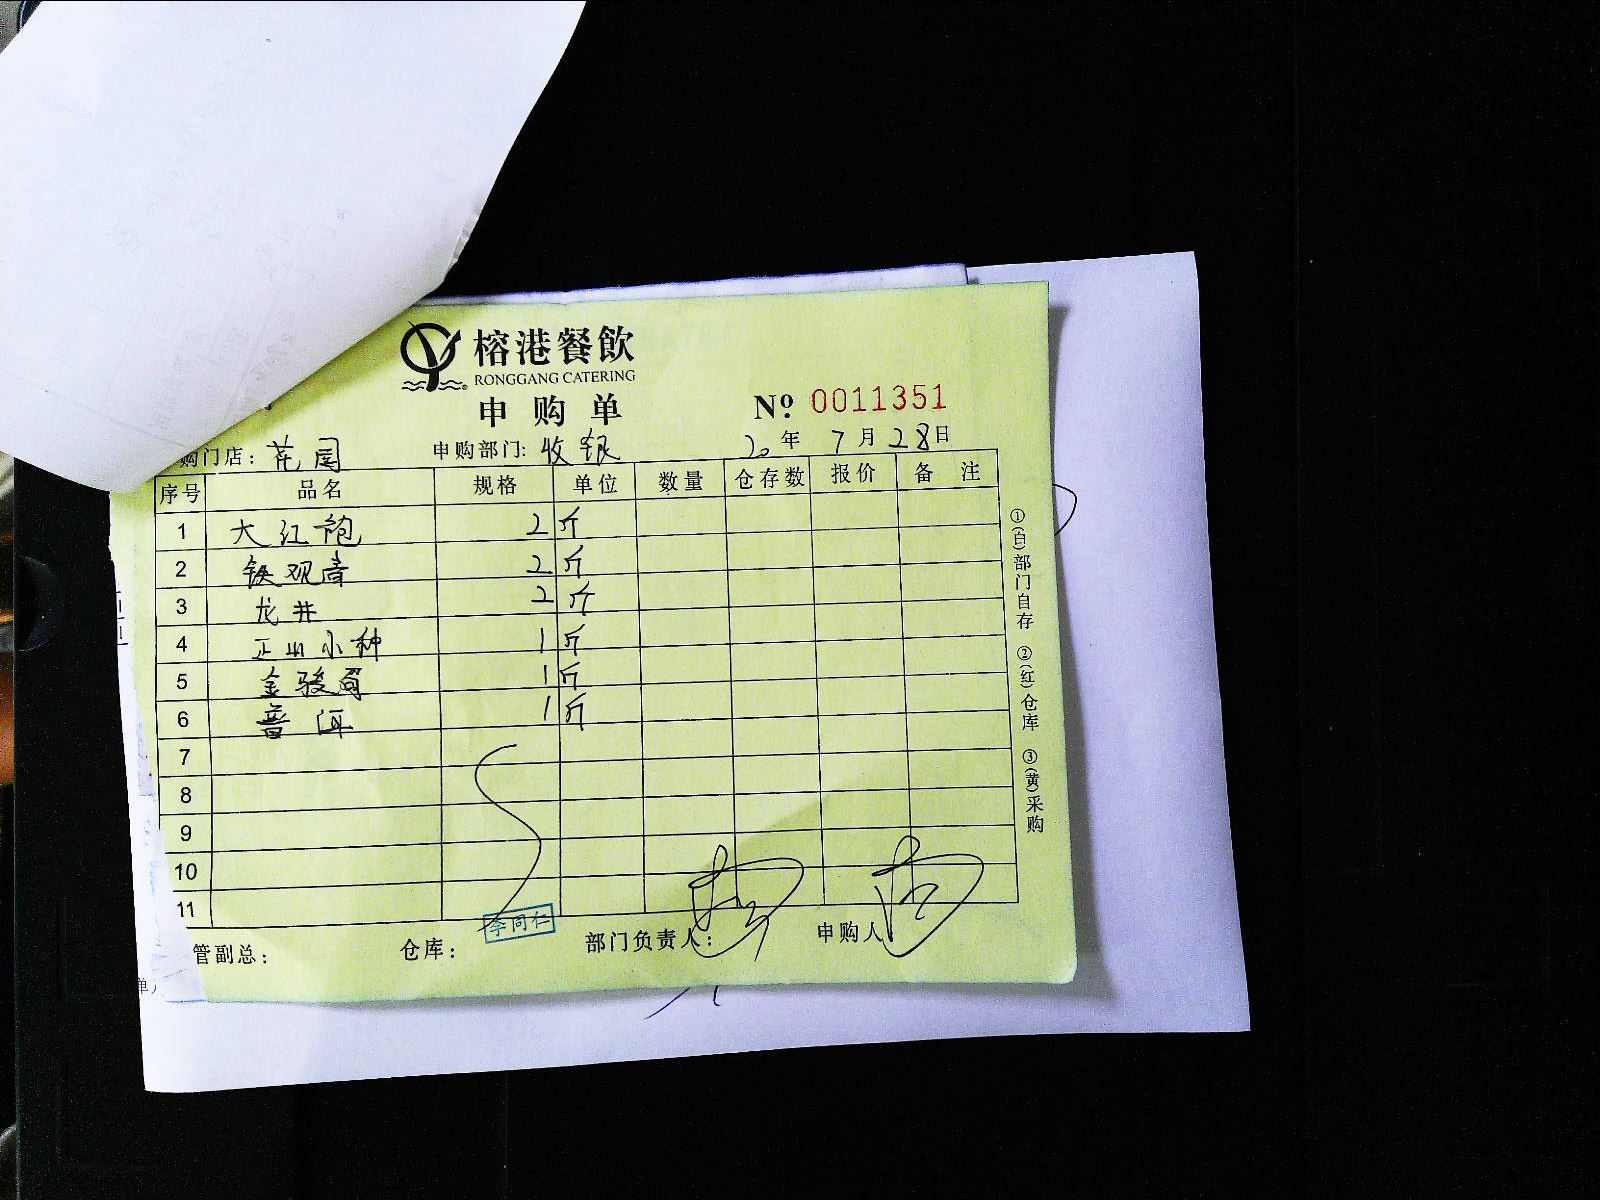 榕港餐飲
RONGGANG CATERING
申购单 Nº 0011351
购门店：花园 申购部门：收银 20年7月28日
序号 品名 规格 单位 数量 仓存数 报价 备注
1 大红袍 2 斤
2 铁观音 2 斤
3 龙井 2 斤
4 正山小种 1 斤
5 金骏眉 1 斤
6 普洱 1 斤
7
8
9
10
11
管副总： 仓库： 李同仁 部门负责人： 申购人
①(白)部门自存 ②(红)仓库 ③(黄)采购